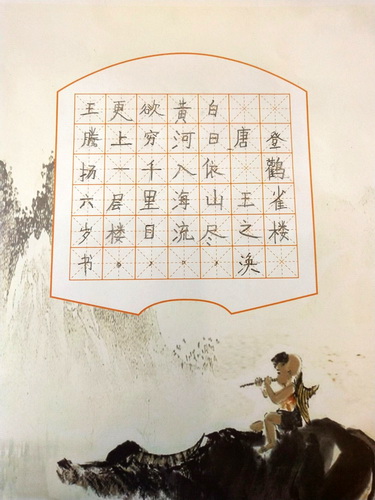 登鹳雀楼
唐 王之涣
白日依山尽，
黄河入海流，
欲穷千里目，
更上一层楼。
王腾扬六岁书